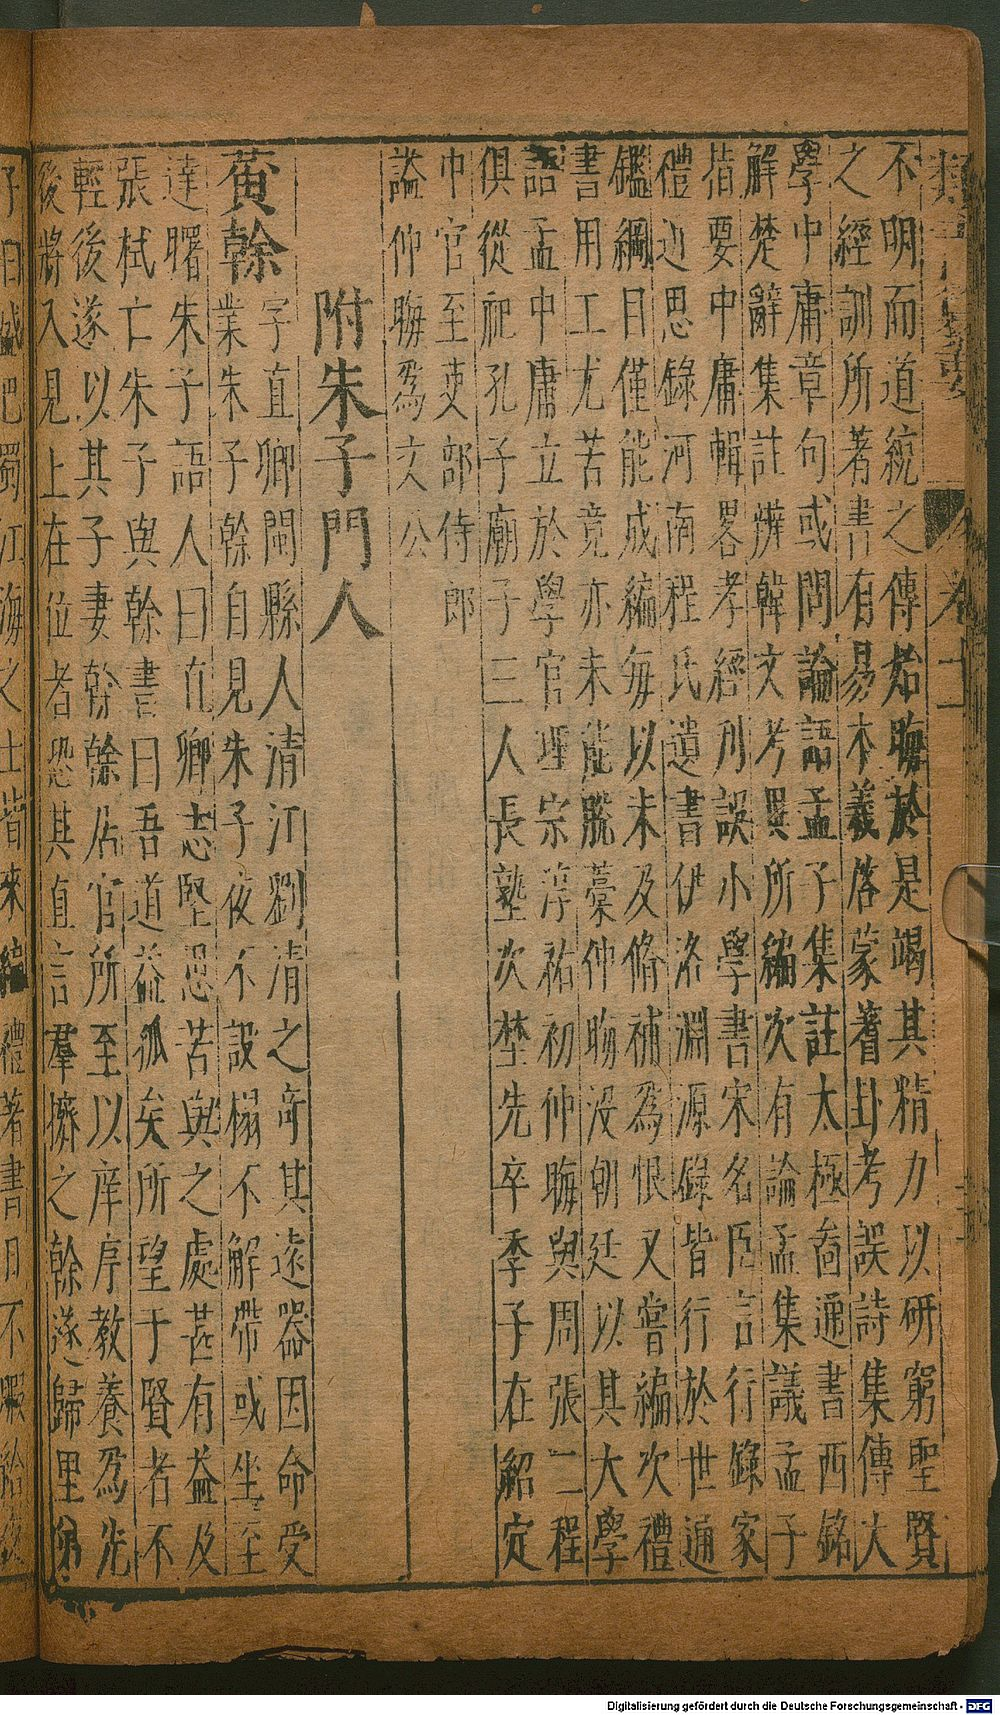 卷十一
不明而道統之傳始晦於是竭其精力以研窮聖賢
之經訓所著書有易本義啓蒙蓍卦考誤詩集傳大
學中庸章句或問論語孟子集註太極啚通書西銘
解楚辭集註辨韓文考異所編次有論孟集議孟子
指要中庸輯畧孝經刋誤小學書宋名臣言行錄家
禮近思錄河南程氏遺書伊洛淵源錄皆行於世通
鑑綱目僅能成編每以未及脩補爲恨又嘗編次禮
書用工尤苦竟亦未能脫藁仲晦沒朝廷以其大學
語孟中庸立於學官理宗淳祐初仲晦與周張二程
俱從祀孔子廟子三人長塾次埜先卒季子在紹定
中官至吏部侍郎
謚仲晦爲文公
附朱子門人
黃榦
字直卿閩縣人清江劉清之奇其遠器因命受
業朱子榦自見朱子夜不設榻不解帶或坐至
達曙朱子語人曰直卿志堅思苦與之處甚有益及
張栻亡朱子與榦書曰吾道益孤矣所望于賢者不
輕後遂以其子妻榦榦居官所至以庠序教養爲先
後將入見上在位者恐其直言羣擠之榦遂歸里弟
子日盛巴蜀江湖之士皆來編禮著書日不暇給
Digitalisierung gefördert durch die Deutsche Forschungsgemeinschaft - DFG